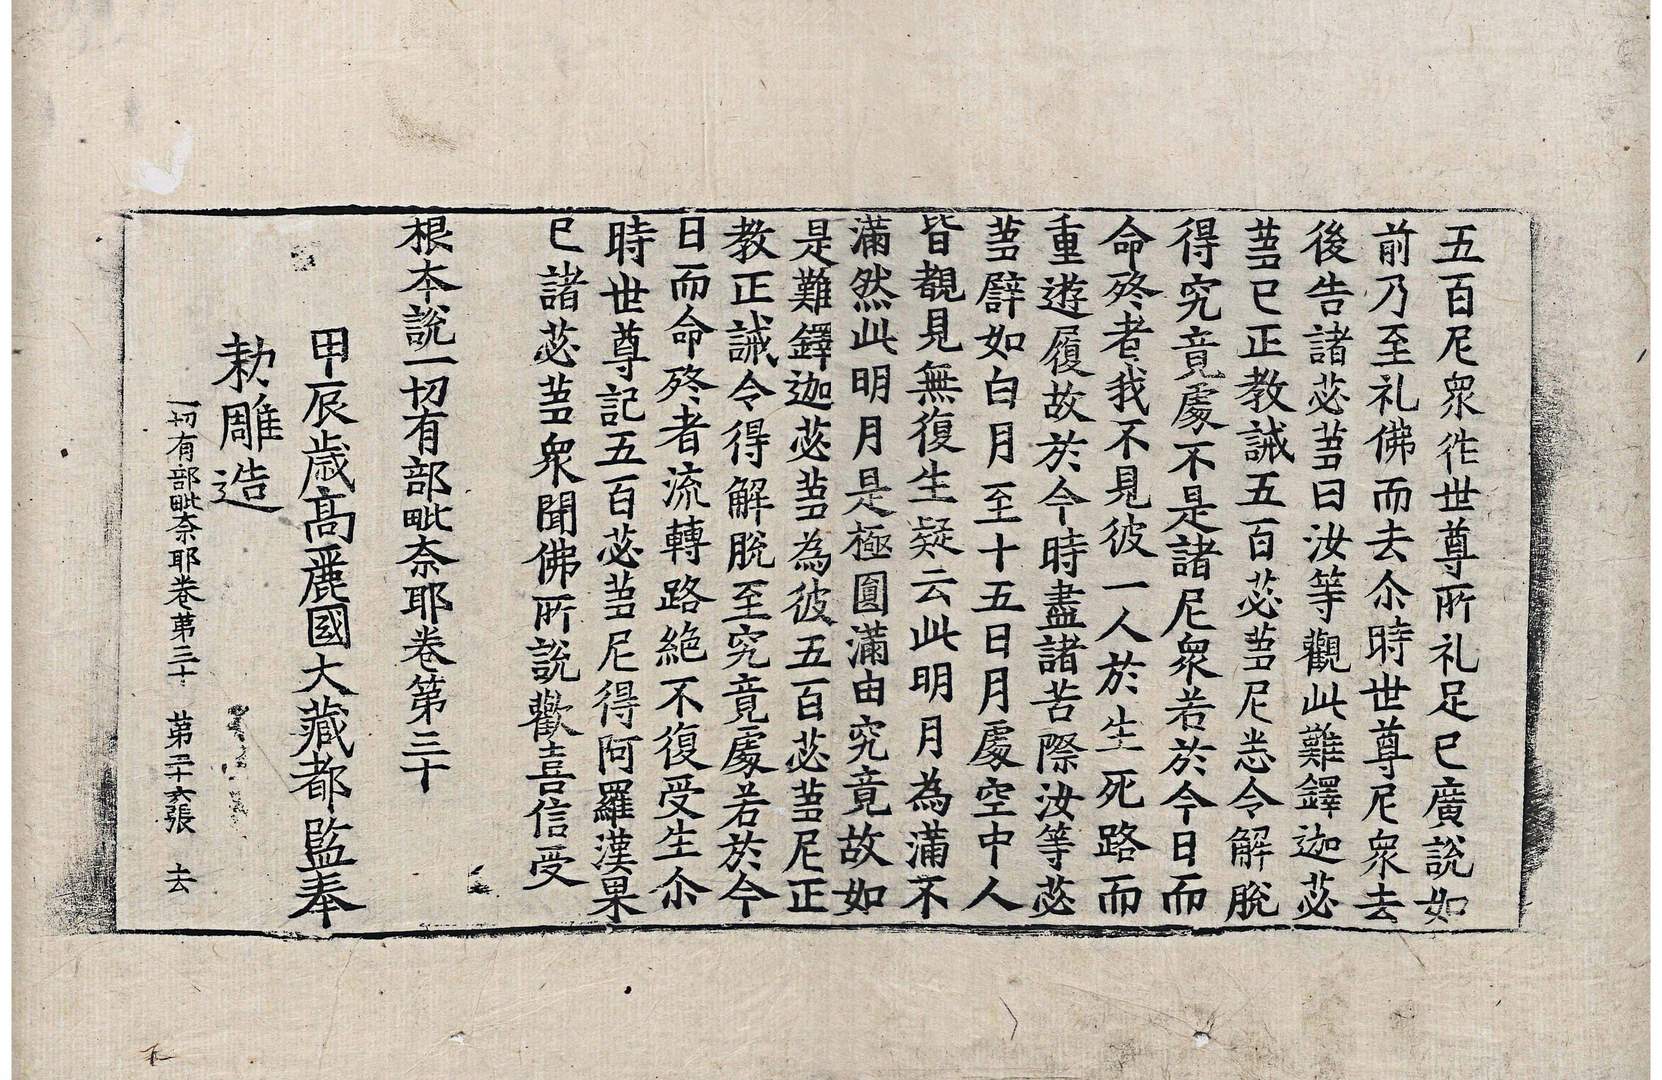 五百尼衆徃世尊所礼足已廣說如
前乃至礼佛而去尒時世尊尼衆去
後告諸苾蒭曰汝等觀此難鐸迦苾
蒭已正教誡五百苾蒭尼悉令解脫
得究竟處不是諸尼衆若於今日而
命終者我不見彼一人於生死路而
重遊履故於今時盡諸苦際汝等苾
蒭譬如白月至十五日月處空中人
皆覩見無復生疑云此明月為滿不
滿然此明月是極圓滿由究竟故如
是難鐸迦苾蒭為彼五百苾蒭尼正
教正誡令得解脫至究竟處若於今
日而命終者流轉路絶不復受生尒
時世尊記五百苾蒭尼得阿羅漢果
已諸苾蒭衆聞佛所說歡喜信受
根本說一切有部毗奈耶卷第三十
甲辰歲高麗國大藏都監奉
勑雕造
一切有部毗奈耶卷第三十 第二十六張 去